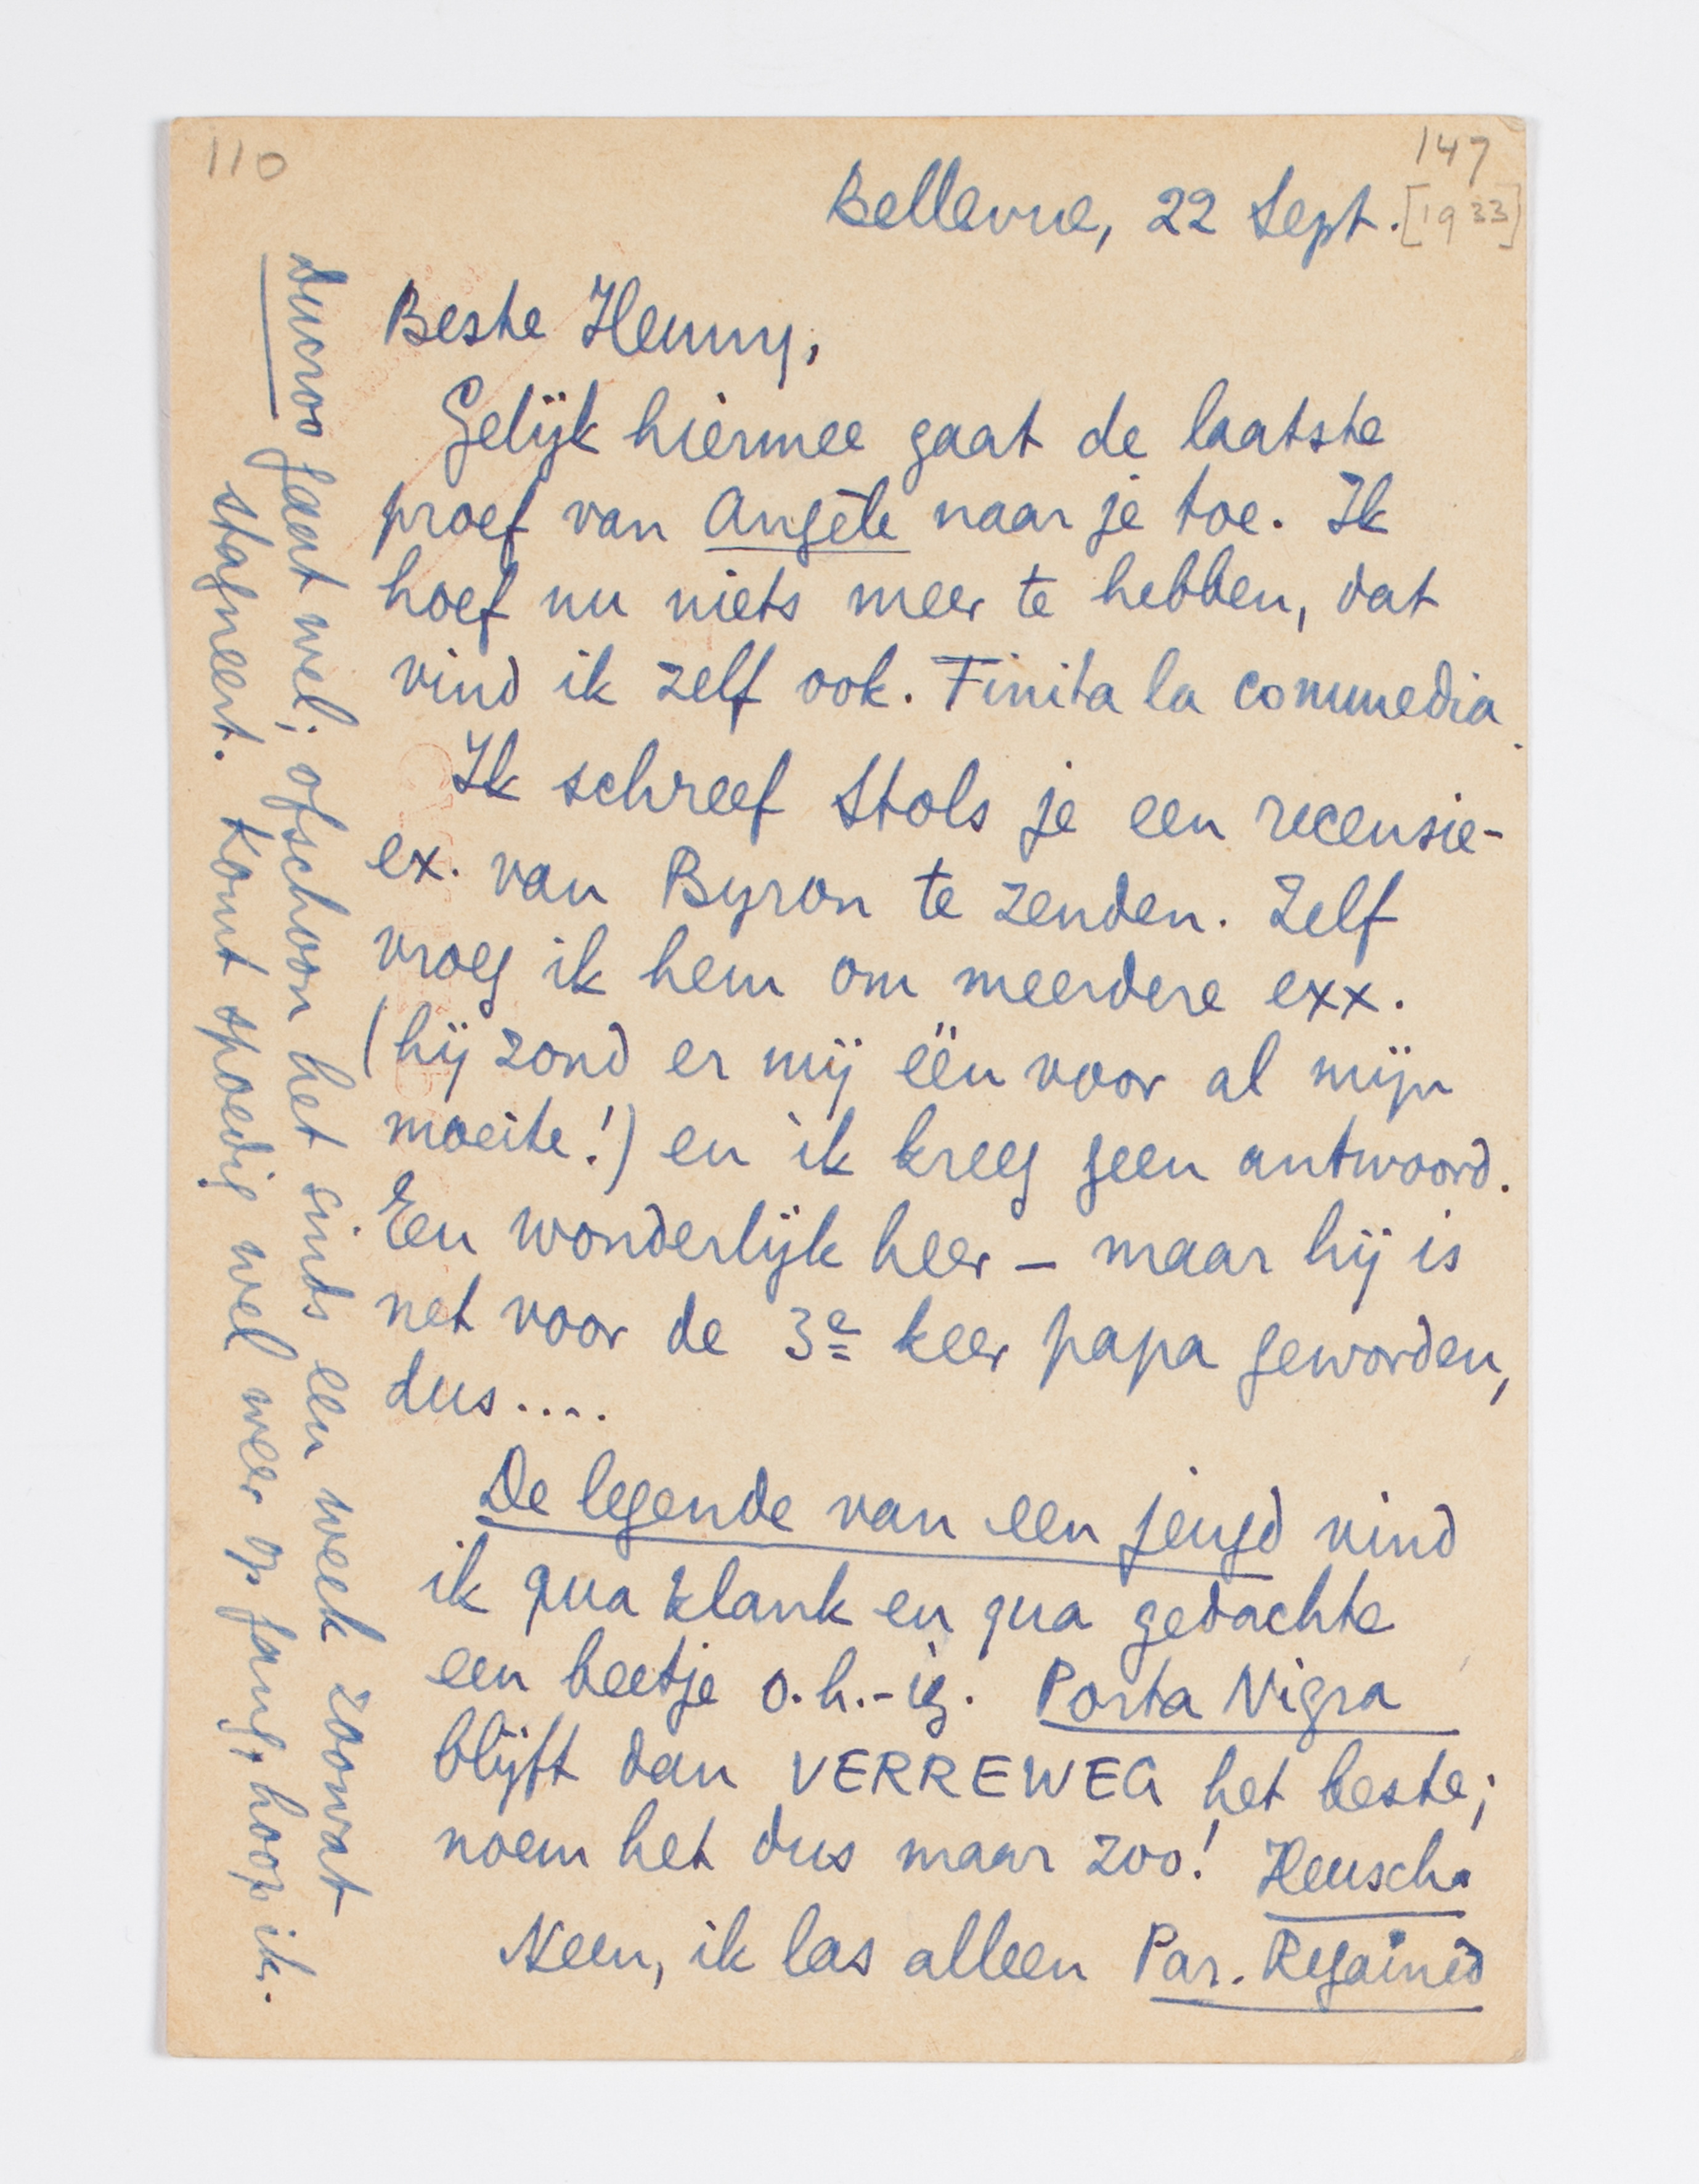 110
147
Bellevue, 22 Sept. [1933]
Beste Henny,
Gelijk hiermee gaat de laatste
proef van Angèle naar je toe. Ik
hoef nu niets meer te hebben, dat
vind ik zelf ook. Finita la commedia.
Ik schreef Stols je een recensie-
ex. van Byron te zenden. Zelf
vroeg ik hem om meerdere exx.
(hij zond er mij één voor al mijn
moeite!) en ik kreeg geen antwoord.
Een wonderlijk heer – maar hij is
net voor de 3e keer papa geworden,
dus....
De legende van een jeugd vind
ik qua klank en qua gedachte
een beetje o.h.-ig. Porta Nigra
blijft dan VERREWEG het beste;
noem het dus maar zoo! Heusch.
Neen, ik las alleen Par. Regained
Ducroo gaat wel; ofschoon het sinds een week zoowat
stagneert. Komt spoedig wel weer op gang, hoop ik.